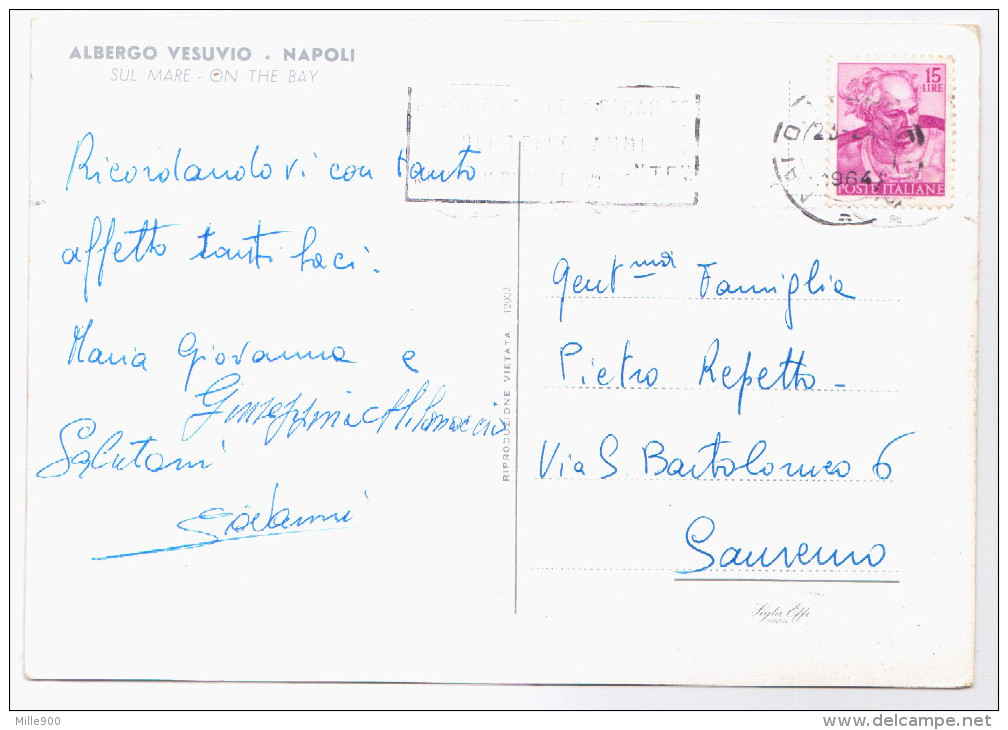 ALBERGO VESUVIO . NAPOLI
SUL MARE - ON THE BAY
15
LIRE
1964
POSTE ITALIANE
Ricordandovi con tanto
affetto tanti baci.
Maria Giovanna e
Giuseppina
Salutoni
Giovanni
RIPRODUZIONE VIETATA 12007
Gent.ma Famiglia
Pietro Repetto -
Via S. Bartolomeo 6
Sanremo
Sigla Effe
Mille900
www.delcampe.net